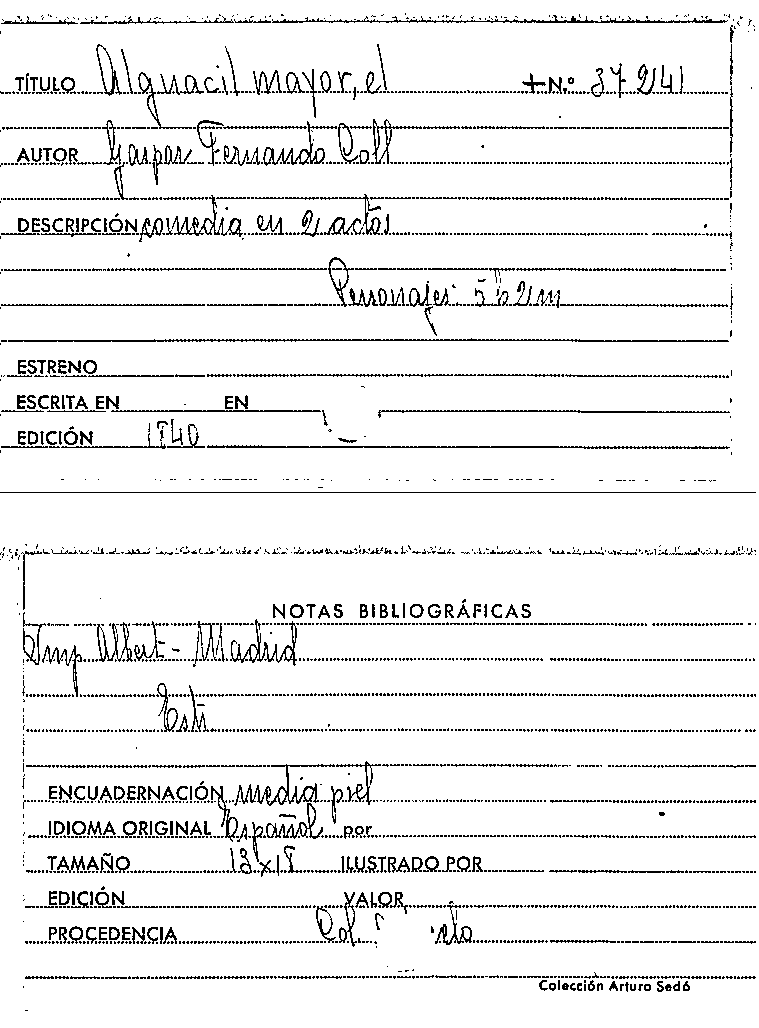 TÍTULO Alguacil mayor, el +N.º 37241
AUTOR Gaspar Fernando Coll
DESCRIPCIÓN comedia en 2 actos
Personajes: 5 h 2 m
ESTRENO
ESCRITA EN EN
EDICIÓN 1840
NOTAS BIBLIOGRÁFICAS
Imp Albert - Madrid
ENCUADERNACIÓN media piel
IDIOMA ORIGINAL Español por
TAMAÑO 13x18 ILUSTRADO POR
EDICIÓN VALOR
PROCEDENCIA Col.
Colección Arturo Sedó